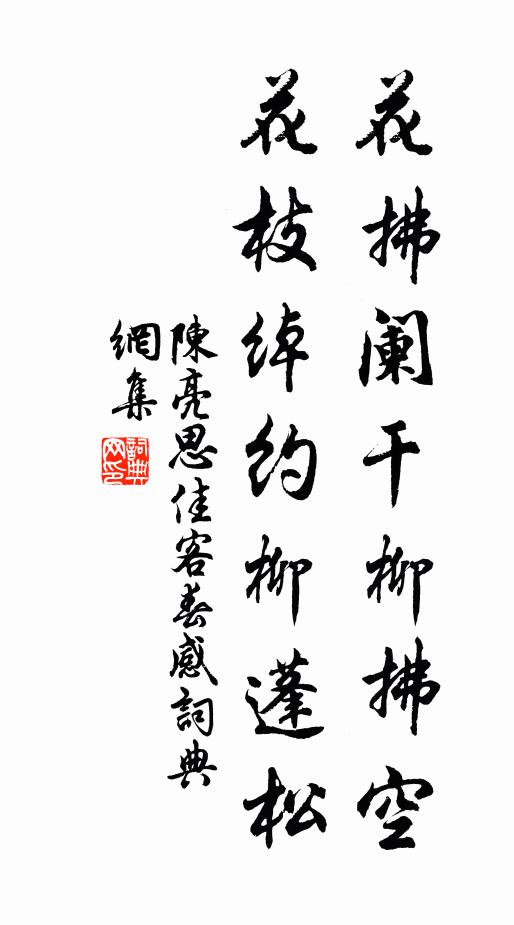 花拂阑干柳拂空
花枝绰约柳蓬松
陳亮思佳客春感詞典
網集
詞典網印